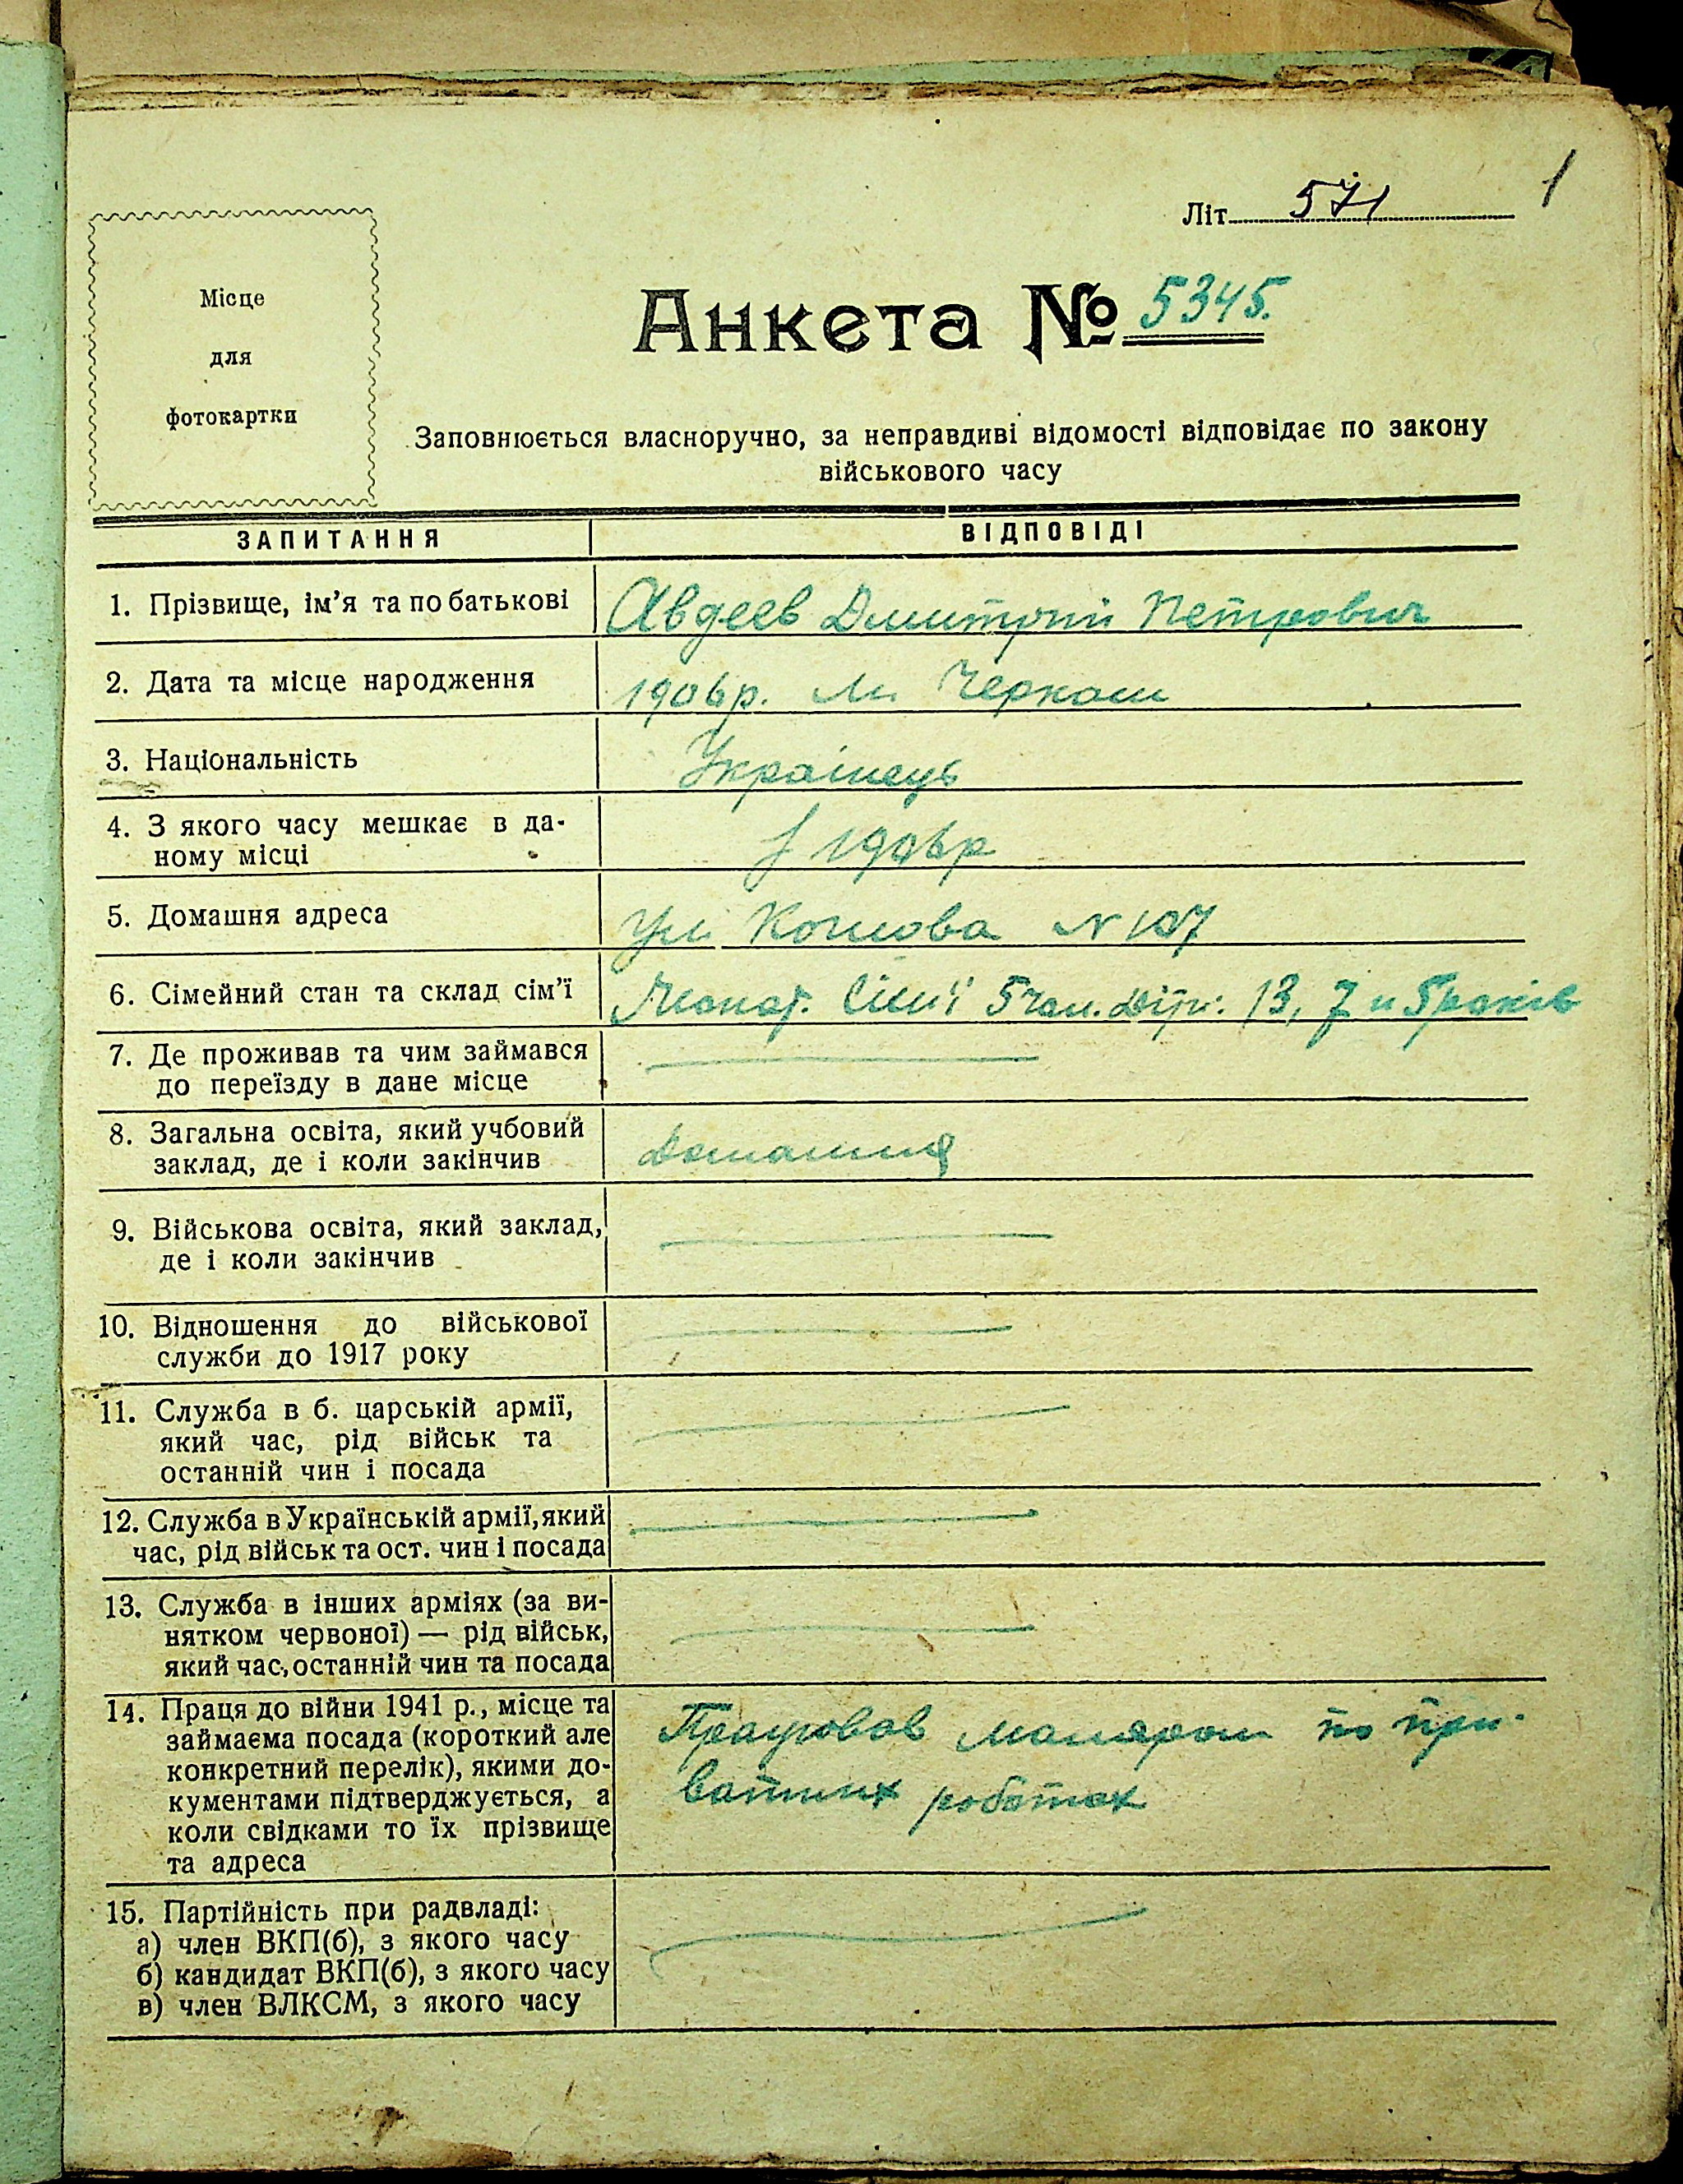 1
Літ. 571
Місце
для
фотокартки
Анкета № 5345.
Заповнюється власноручно, за неправдиві відомості відповідає по закону
військового часу
ЗАПИТАННЯ ВІДПОВІДІ
1. Прізвище, ім'я та по батькові Авдеев Дмитрий Петрович
2. Дата та місце народження 1906р. м. Черкаси
3. Національність Украінець
4. З якого часу мешкає в да-
ному місці з 1906р
5. Домашня адреса Ул. N 107
6. Сімейний стан та склад сім'ї Жонат. Сімї 5 чол. Діти: 13, 7 и 5 років
7. Де проживав та чим займався
до переїзду в дане місце
8. Загальна освіта, який учбовий
заклад, де і коли закінчив Домашня
9. Військова освіта, який заклад,
де і коли закінчив
10. Відношення до військової
служби до 1917 року
11. Служба в б. царській армії,
який час, рід військ та
останній чин і посада
12. Служба в Українській армії, який
час, рід військ та ост. чин і посада
13. Служба в інших арміях (за ви-
нятком червоної) — рід військ,
який час, останній чин та посада
14. Праця до війни 1941 р., місце та
займаєма посада (короткий але
конкретний перелік), якими до-
кументами підтверджується, а
коли свідками то їх прізвище
та адреса
Працював маляром по при-
ватних роботах
15. Партійність при радвладі:
а) член ВКП(б), з якого часу
б) кандидат ВКП(б), з якого часу
в) член ВЛКСМ, з якого часу